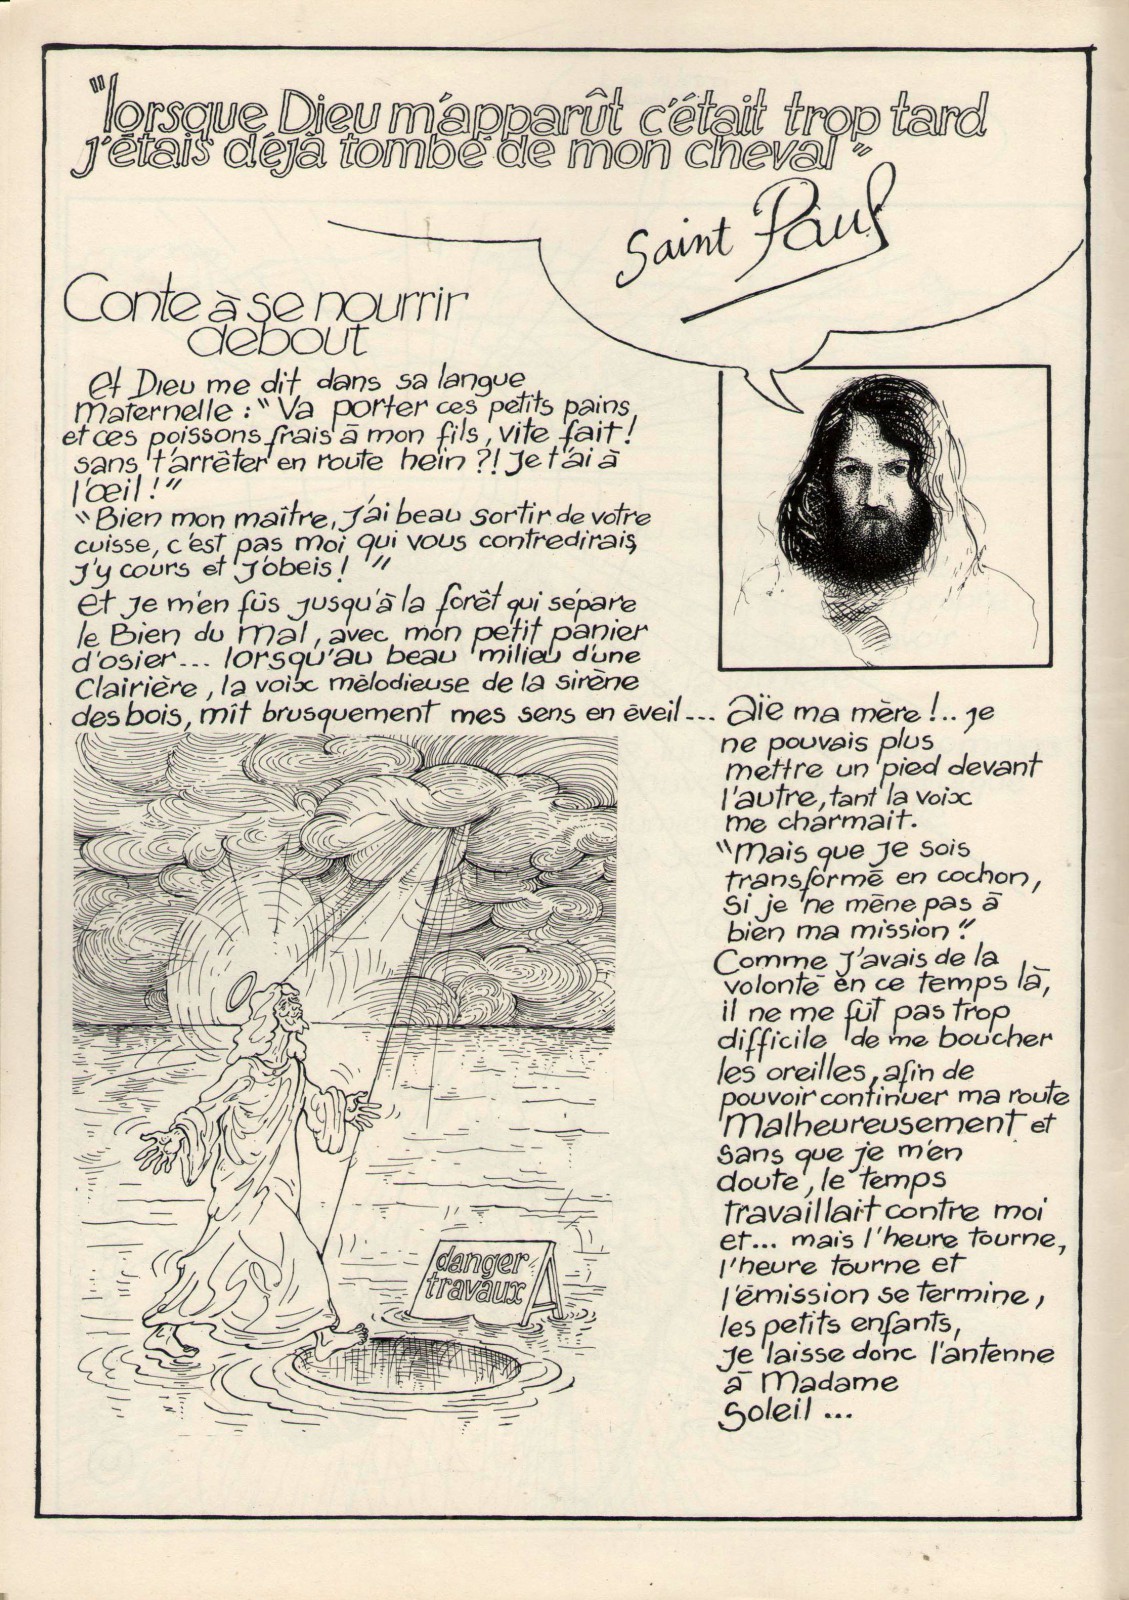 "lorsque Dieu m'apparût c'était trop tard
j'étais déjà tombé de mon cheval"
Saint Paul
Conte à se nourrir
debout
et Dieu me dit dans sa langue
maternelle : "Va porter ces petits pains,
et ces poissons frais à mon fils, vite fait !
sans t'arrêter en route hein ?! Je t'ai à
l'œil !"
"Bien mon maître, j'ai beau sortir de votre
cuisse, c'est pas moi qui vous contredirais,
j'y cours et j'obeis ! "
et je m'en fûs jusqu'à la forêt qui sépare
le Bien du Mal, avec mon petit panier
d'osier... lorsqu'au beau milieu d'une
Clairière, la voix mélodieuse de la sirène
des bois, mît brusquement mes sens en éveil... aïe ma mère !.. je
ne pouvais plus
mettre un pied devant
l'autre, tant la voix
me charmait.
"Mais que je sois
transformé en cochon,
si je ne mène pas à
bien ma mission !"
Comme j'avais de la
volonté en ce temps là,
il ne me fût pas trop
difficile de me boucher
les oreilles, afin de
pouvoir continuer ma route
Malheureusement et
sans que je m'en
doute, le temps
travaillait contre moi
et... mais l'heure tourne,
l'heure tourne et
l'émission se termine,
les petits enfants,
je laisse donc l'antenne
à Madame
Soleil ...
danger
travaux